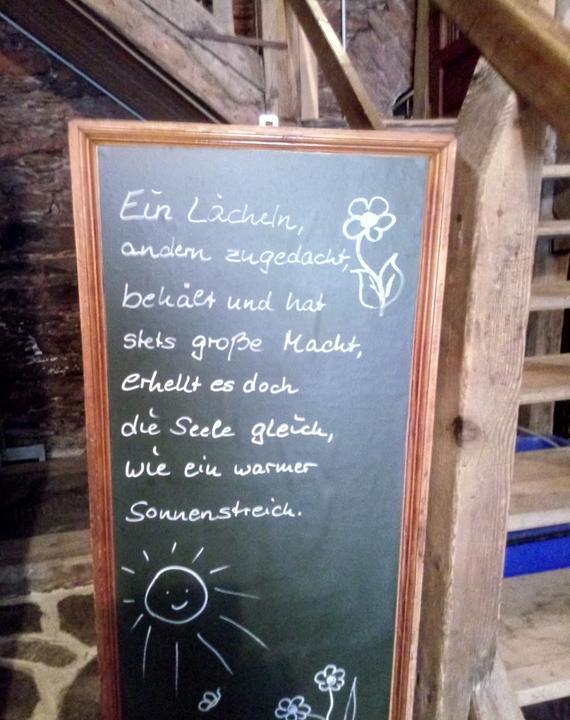 Ein Lächeln,
andern zugedacht,
behält und hat
stets große Macht,
erhellt es doch
die Seele gleich,
wie ein warmer
Sonnenstreich.